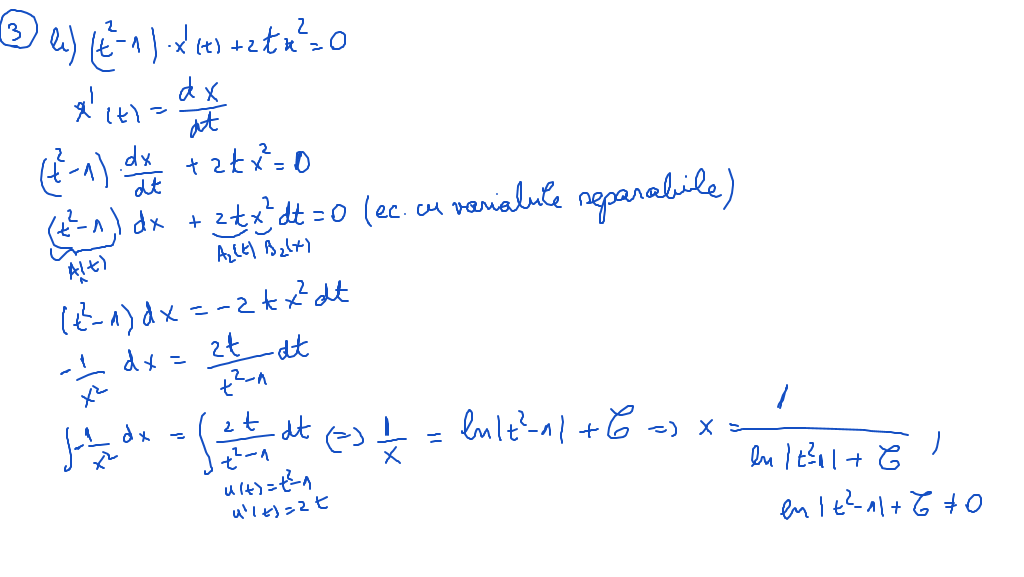 ③ b) (t²-1)·x'(t)+2tx²=0
x'(t) = dx/dt
(t²-1)·dx/dt + 2tx²=0
(t²-1) dx + 2tx² dt=0 (ec. cu variabile separabile)
A₁(t) A₂(t) B₂(x)
(t²-1) dx = -2tx² dt
-1/x² dx = 2t/(t²-1) dt
∫-1/x² dx = ∫ 2t/(t²-1) dt (=) 1/x = ln|t²-1| + C => x = 1/(ln|t²-1| + C) ,
u(t)=t²-1 ln|t²-1|+C ≠ 0
u'(t)=2t